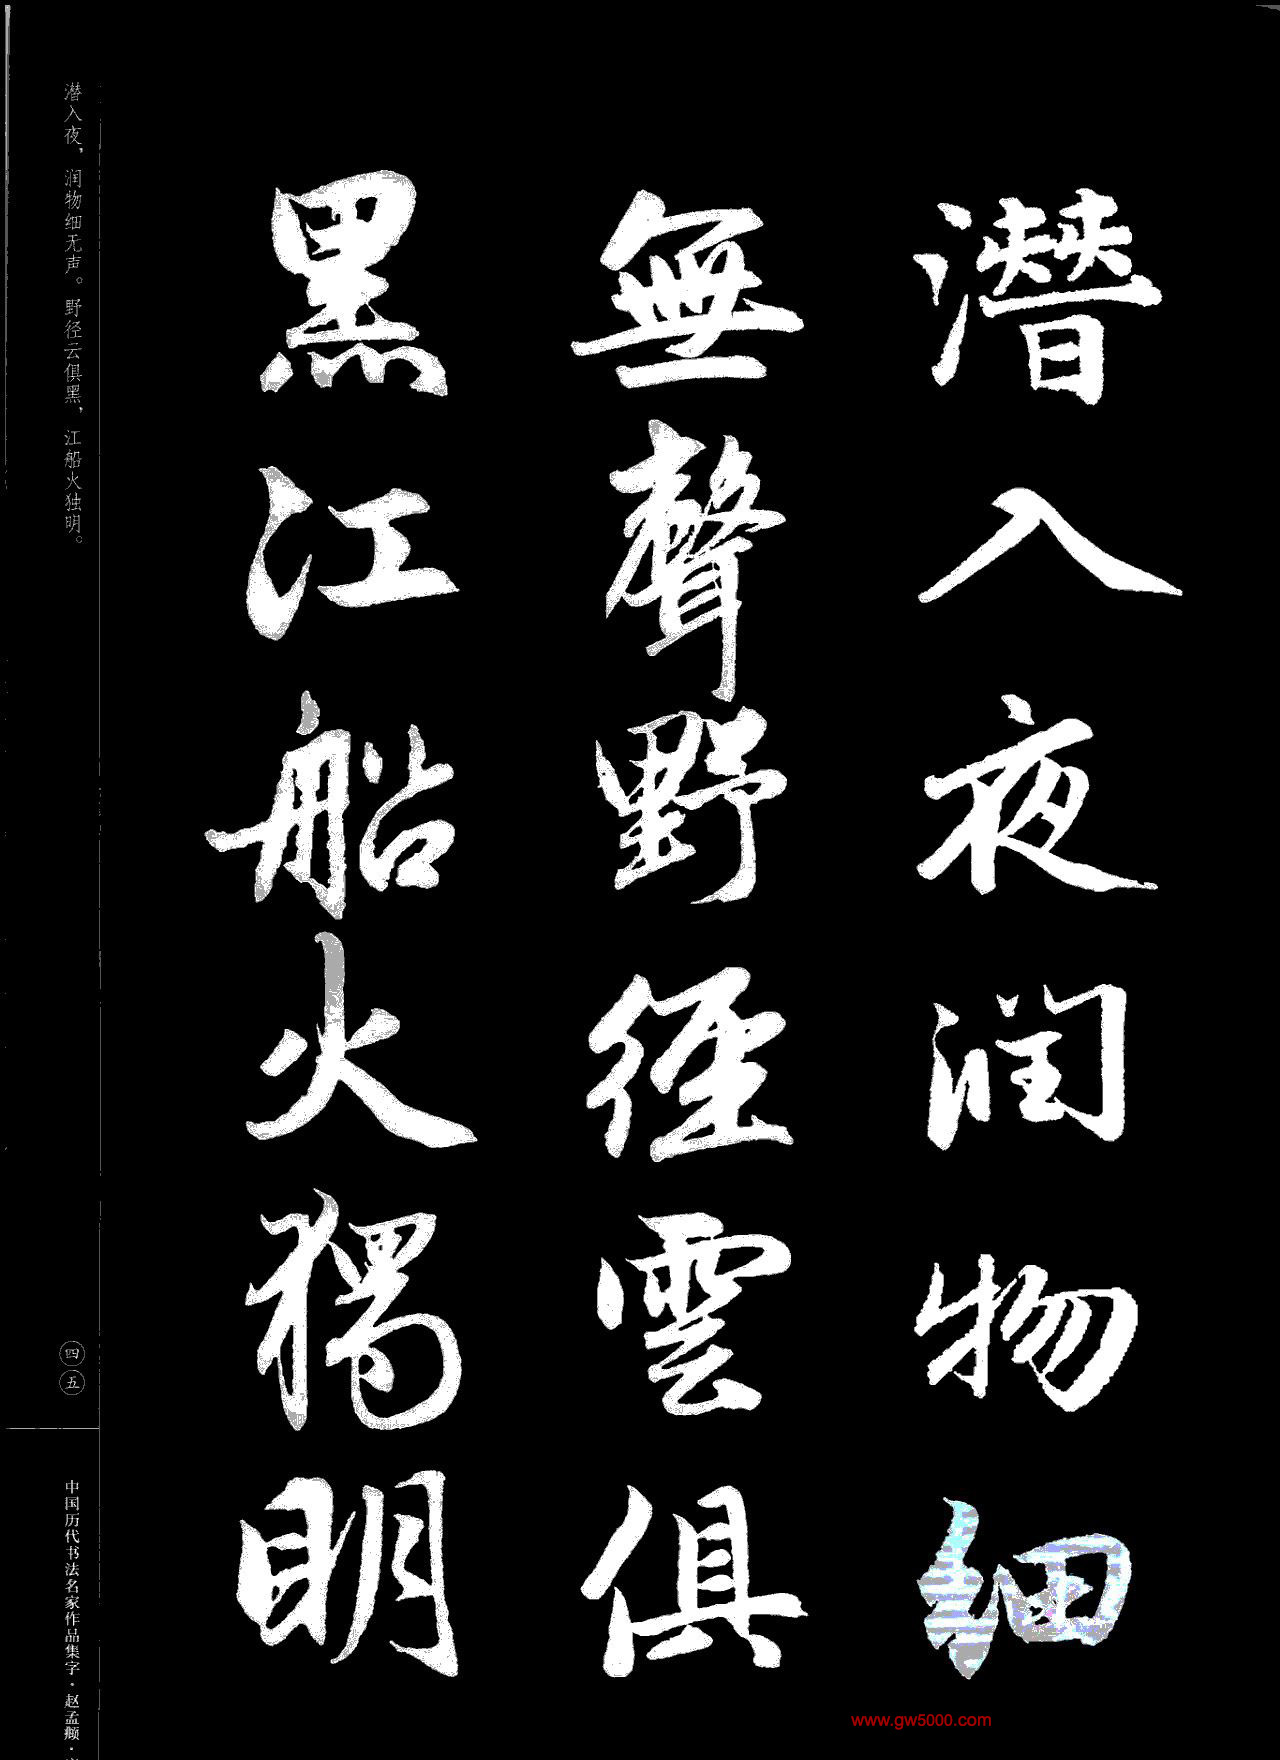 潛入夜润物细
無聲野徑雲俱
黑江船火獨明
潜入夜，润物细无声。野径云俱黑，江船火独明。
四五
中国历代书法名家作品集字·赵孟頫·
www.gw5000.com